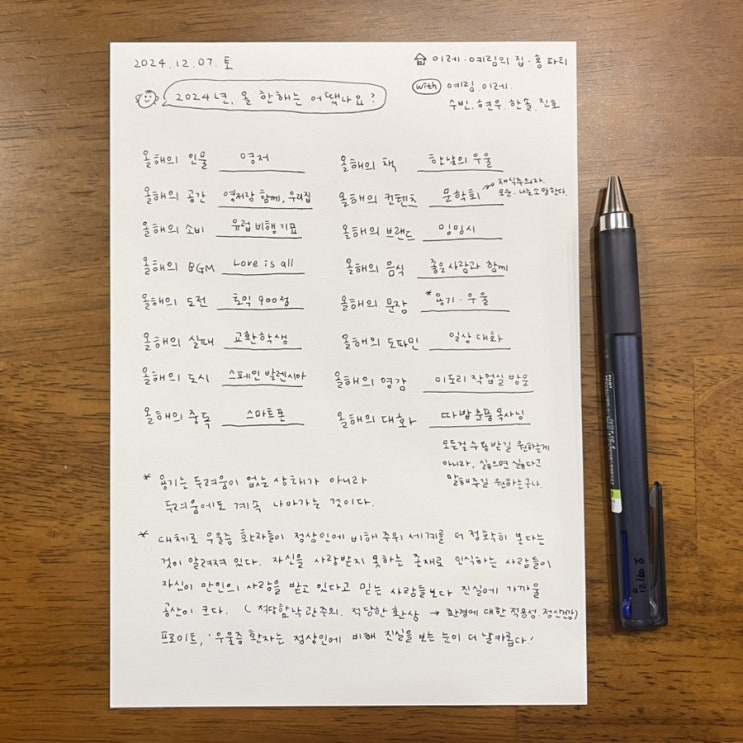 2024.12.07.토
이레·예림의 집·홈파티
2024년, 올 한해는 어땠나요?
with 예림, 이레,
수빈, 현우, 한솔, 진호
올해의 인물 영저
올해의 책 한낮의 우울
올해의 공간 영저랑 함께, 우리집
올해의 컨텐츠 문학회 → 채식주의자.
모순. 나는소망한다.
올해의 소비 유럽 비행기표
올해의 브랜드 밍밍시
올해의 BGM Love is all
올해의 음식 좋은사람과 함께
올해의 도전 토익 900점
올해의 문장 * 용기·우울
올해의 실패 교환학생
올해의 도파민 일상 대화
올해의 도시 스페인 발렌시아
올해의 영감 미도리 작업실 방문
올해의 중독 스마트폰
올해의 대화 따방 춘풍 목사님
모든걸 수용받길 원하는게
아니라, 싫으면 싫다고
말해주길 원하는구나.
* 용기는 두려움이 없는 상태가 아니라
두려움에도 계속 나아가는 것이다.
* 대체로 우울증 환자들이 정상인에 비해 주위 세계를 더 정확히 본다는
것이 알려져 있다. 자신을 사랑받지 못하는 존재로 인식하는 사람들이
자신이 만인의 사랑을 받고 있다고 믿는 사람들보다 진실에 가까울
공산이 크다. (적당함 낙관주의. 적당한 환상 → 환경에 대한 적응성, 정신건강)
프로이트, '우울증 환자는 정상인에 비해 진실을 보는 눈이 더 날카롭다.'